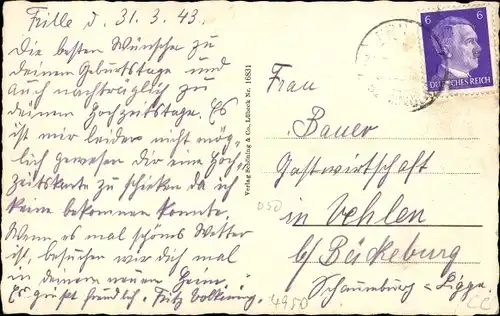 Frille d. 31.3.43.
Die besten Wünsche zu
deinem Geburtstage und
auch nachträglich zu
deinem Hochzeitstage. Es
ist mir leider nicht mög-
lich gewesen dir eine Hoch-
zeitskarte zu schicken da ich
keine bekommen konnte.
Wenn es mal schönes Wetter
ist, besuchen wir dich mal
in deinem neuen Heim.
Es grüßt freundlich Fritz
Verlag Schöning & Co., Lübeck Nr. 16831
6 6
DEUTSCHES REICH
Frau
Bauer
Gastwirtschaft
in Vehlen
b/ Bückeburg
Schaumburg-Lippe
050
4950
CC